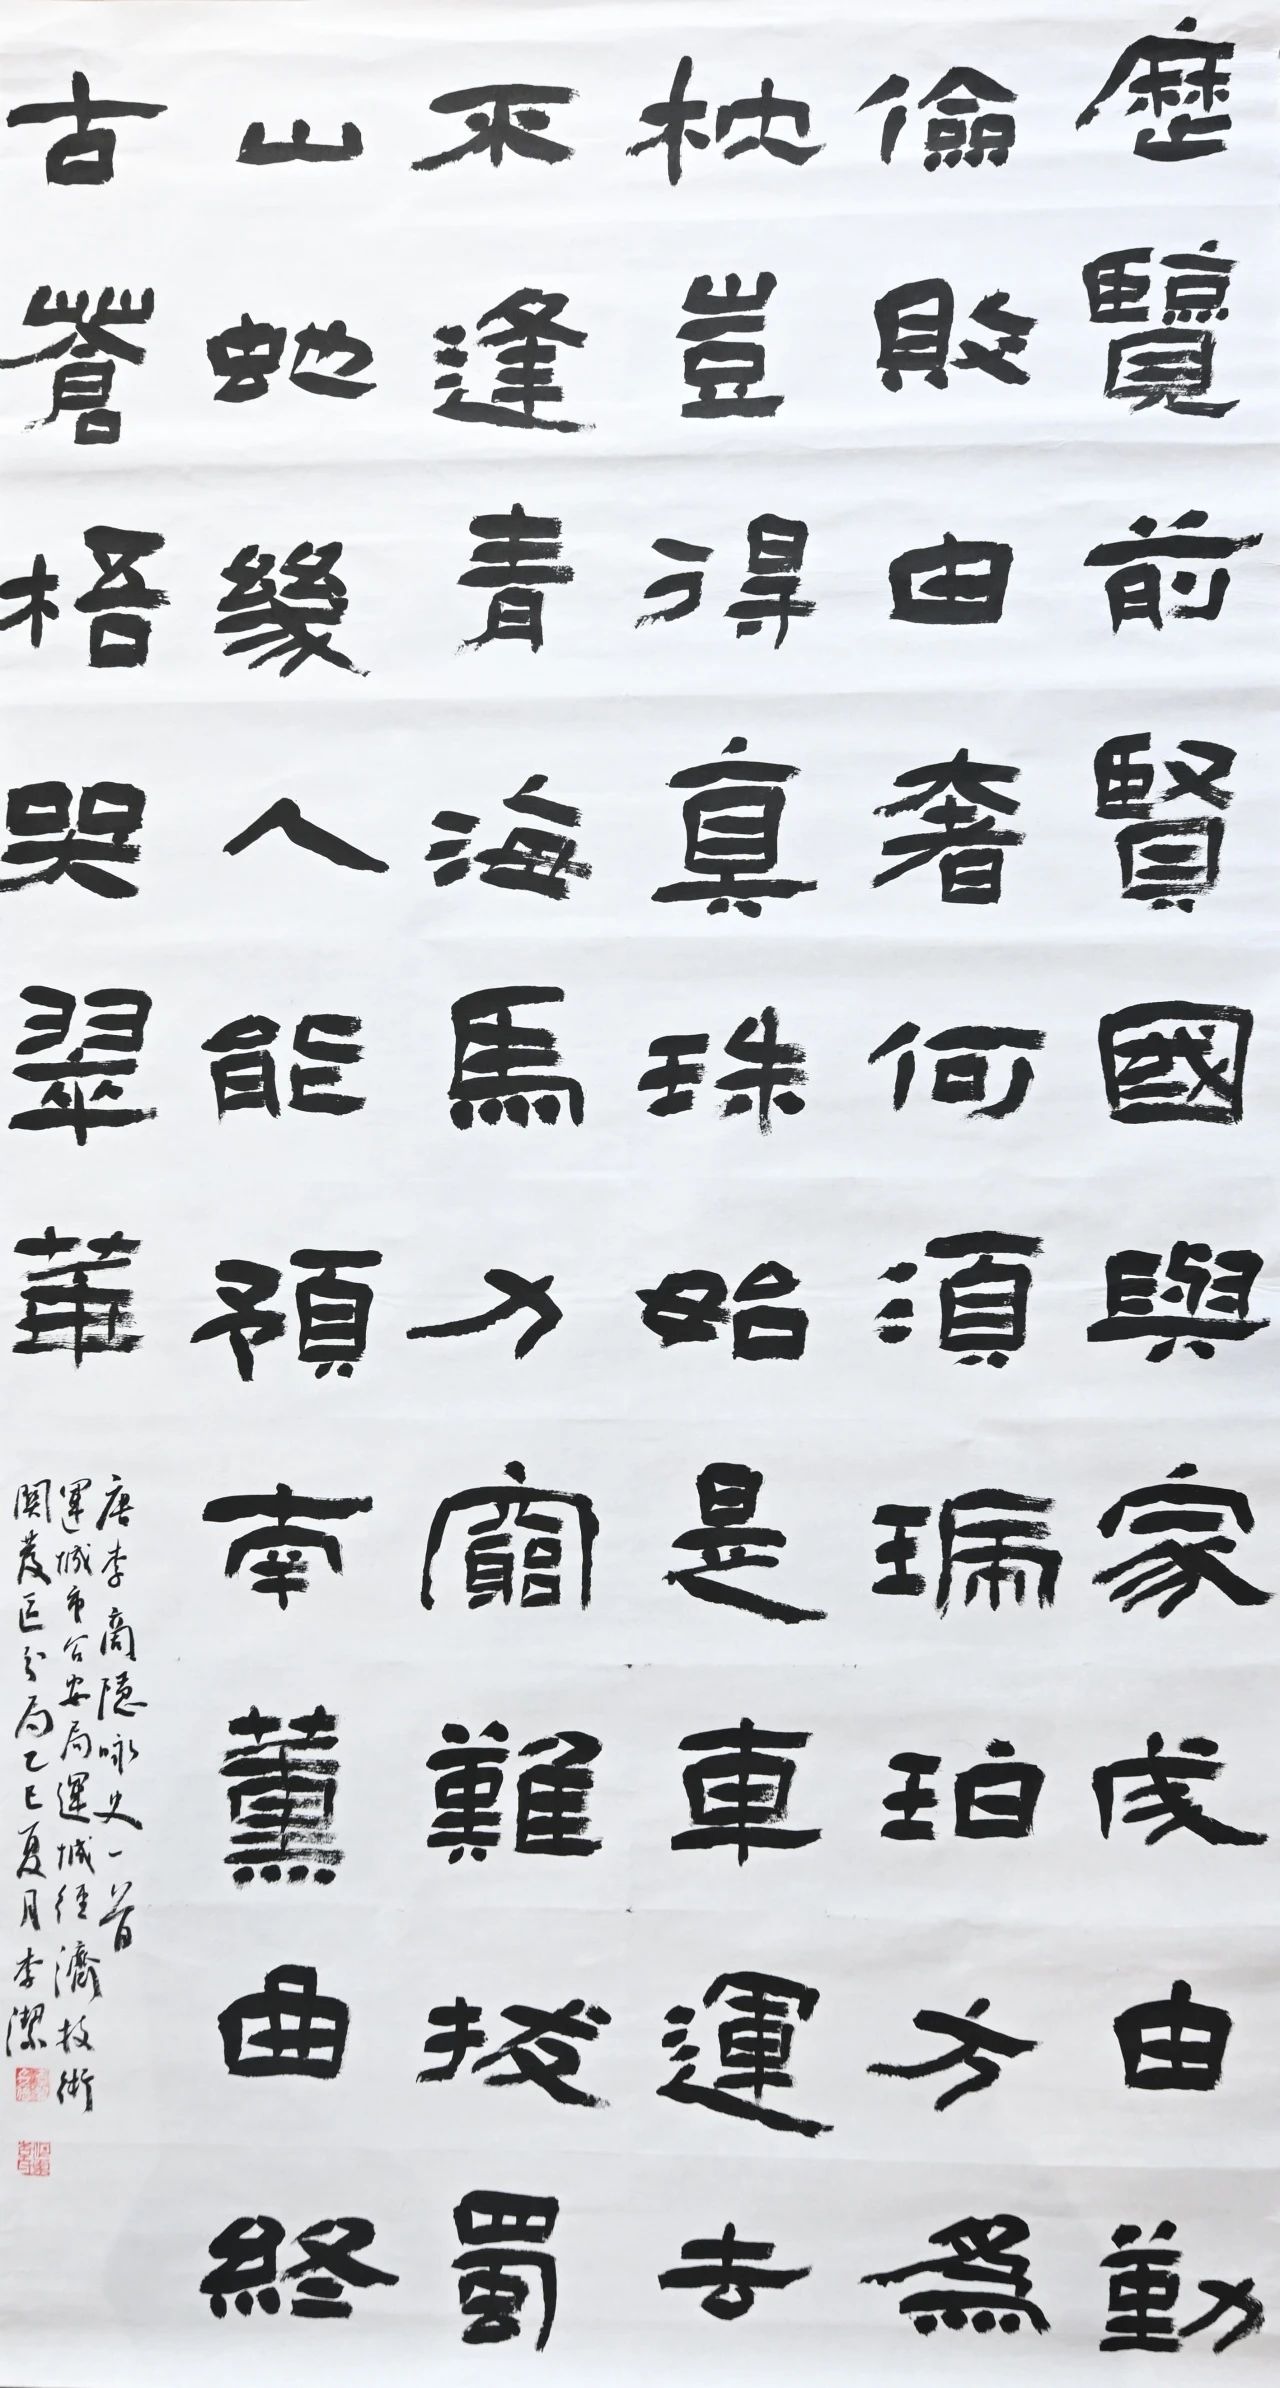 歷覽前賢國與家成由勤
儉敗由奢何須琥珀方爲
枕豈得真珠始是車運去
不逢青海馬力窮難拔蜀
山虵幾人能預南薰曲終
古蒼梧哭翠華
唐李商隱咏史一首
運城市公安局運城經濟技術
開發區分局乙巳夏月李潔